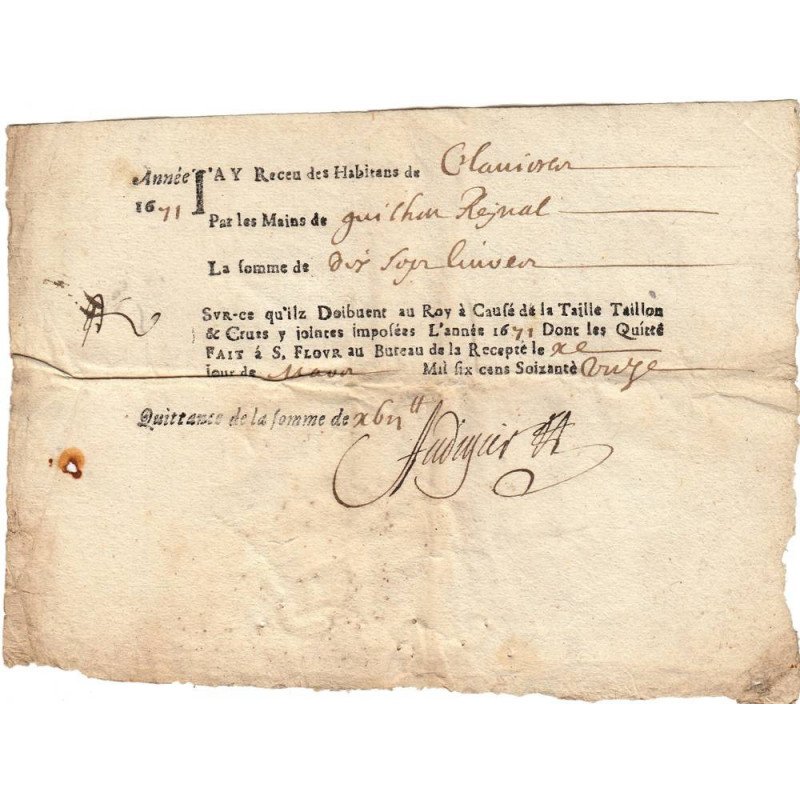 Année I'AY Receu des Habitans de Clauieres
1671
Par les Mains de guilhou Reynal
La somme de dix sept liures
SVR-ce qu'ilz Doibuent au Roy à Causé de la Taille Taillon
& Crues y jointes imposées L'année 1671 Dont les Quitté
FAIT á S. FLOVR au Buteau de la Recepté le xe
jour de Mars Mil six cens Soizanté unze
Quittance de la somme de xbii ℔
Audigier